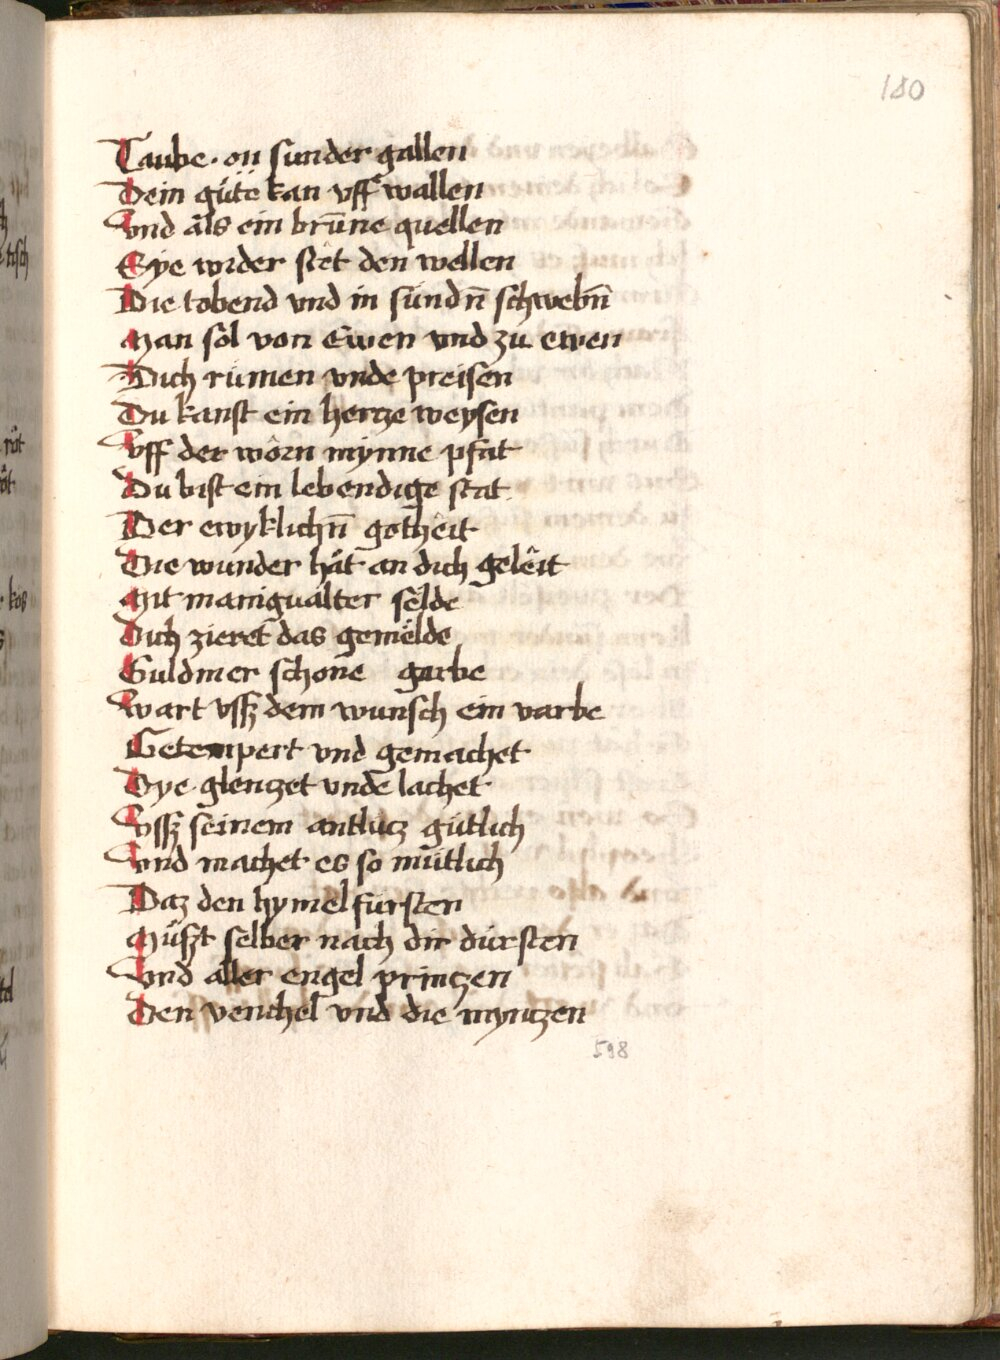 180
Taube · on sunder gallen
Dein güte kan vff wallen
Vnd als ein brūne quellen
Eye wider stet den wellen
Die tobend vnd in sündn̄ schwebn̄
Man sol von Ewen vnd zu ewen
Dich rümen vnde preisen
Du kanst ein hertze weysen
Vff der worn mynne pfat
Du bist ein lebendige stat
Der ewyklichn̄ gotheit
Die wunder hät an dich geleit
Mit manigualter selde
Dich zieret das gemelde
Guldiner schone garbe
Wart vssz dem wunsch ein varbe
Getempert vnd gemachet
Dye glentzet vnde lachet
Vssz seinem antlucz gütlich
Vnd machet es so mütlich
Daz den hymelfürsten
Müszt selber nach dir dürsten
Vnd aller engel printzen
Den venchel vnd die myntzen
598